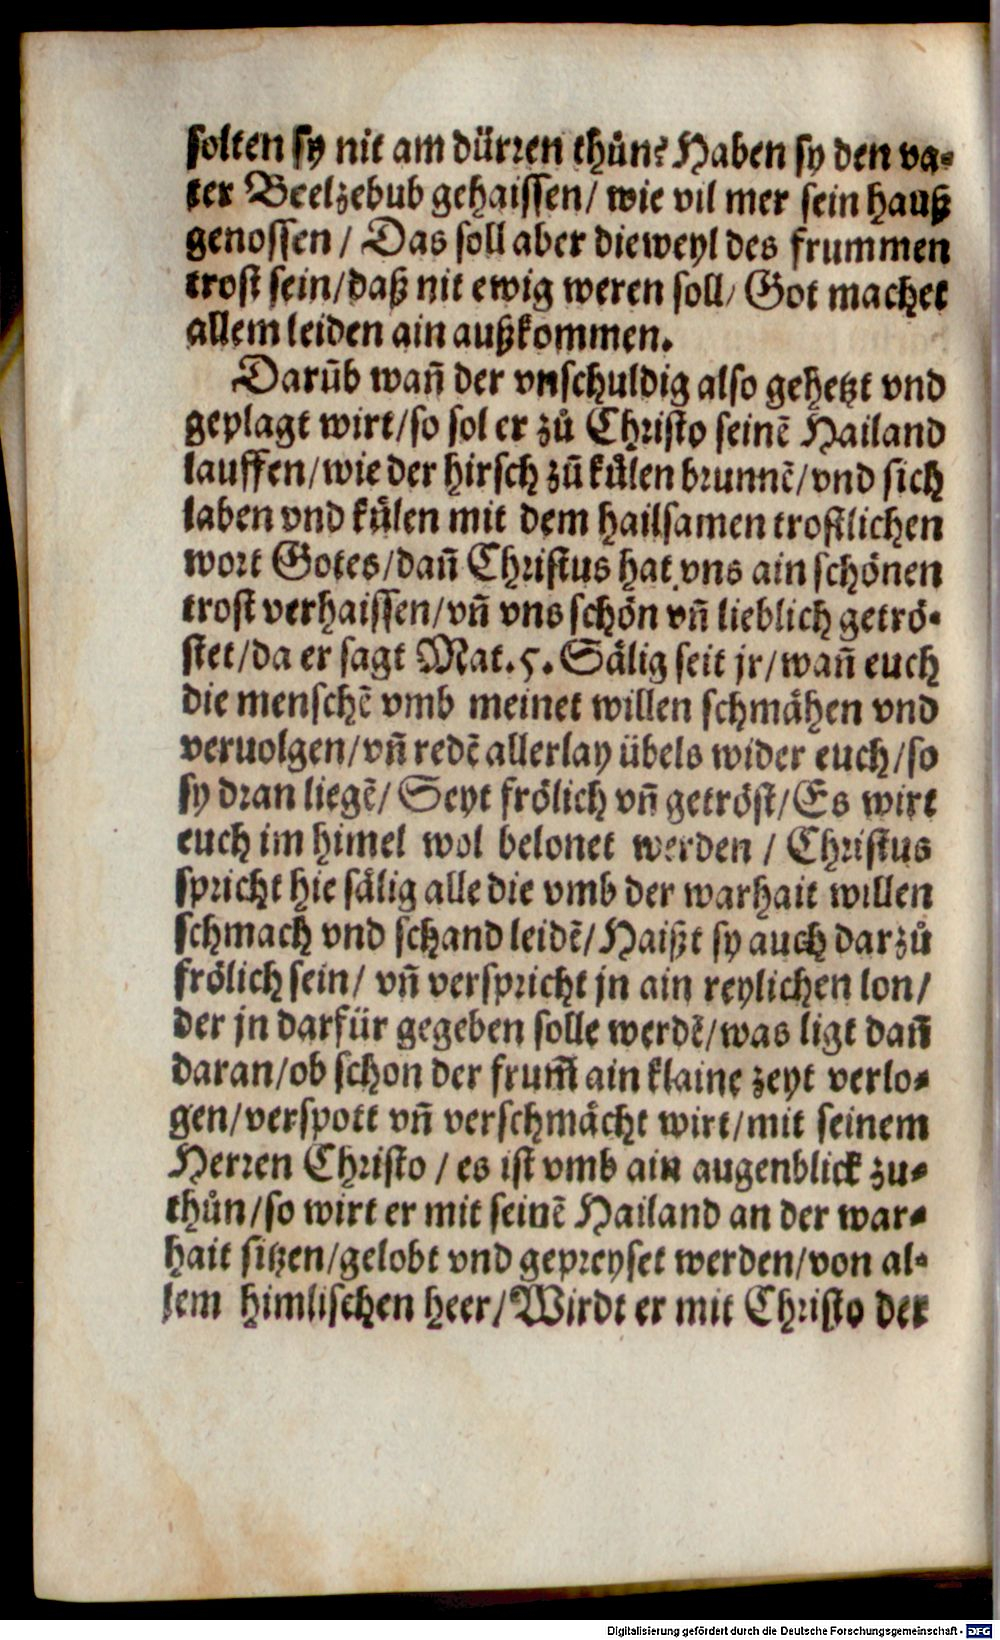 solten sy nit am dürren thůn? Haben sy den va⸗
ter Beelzebub gehaissen/ wie vil mer sein hauß
genossen / Das soll aber dieweyl des frummen
trost sein/daß nit ewig weren soll/ Got machet
allem leiden ain außkommen.
Darūb wañ der vnschuldig also gehetzt vnd
geplagt wirt/so sol er zů Christo seinē Hailand
lauffen/wie der hirsch zū kůlen brunnē/vnd sich
laben vnd kůlen mit dem hailsamen trostlichen
wort Gotes/dañ Christus hat vns ain schönen
trost verhaissen/vñ vns schön vñ lieblich getrö⸗
stet/da er sagt Mat.5. Sälig seit jr/wañ euch
die menschē vmb meinet willen schmähen vnd
veruolgen/vñ redē allerlay übels wider euch/so
sy dran liegē/ Seyt frölich vñ getröst/Es wirt
euch im himel wol belonet werden / Christus
spricht hie sälig alle die vmb der warhait willen
schmach vnd schand leidē/Haißt sy auch darzů
frölich sein/ vñ verspricht jn ain reylichen lon/
der jn darfür gegeben solle werdē/was ligt dañ
daran/ob schon der frum̃ ain klaine zeyt verlo⸗
gen/verspott vñ verschmächt wirt/mit seinem
Herren Christo / es ist vmb ain augenblick zu⸗
thůn/so wirt er mit seinē Hailand an der war⸗
hait sitzen/gelobt vnd gepreyset werden/von al⸗
lem himlischen heer/Wirdt er mit Christo der
Digitalisierung gefördert durch die Deutsche Forschungsgemeinschaft - DFG